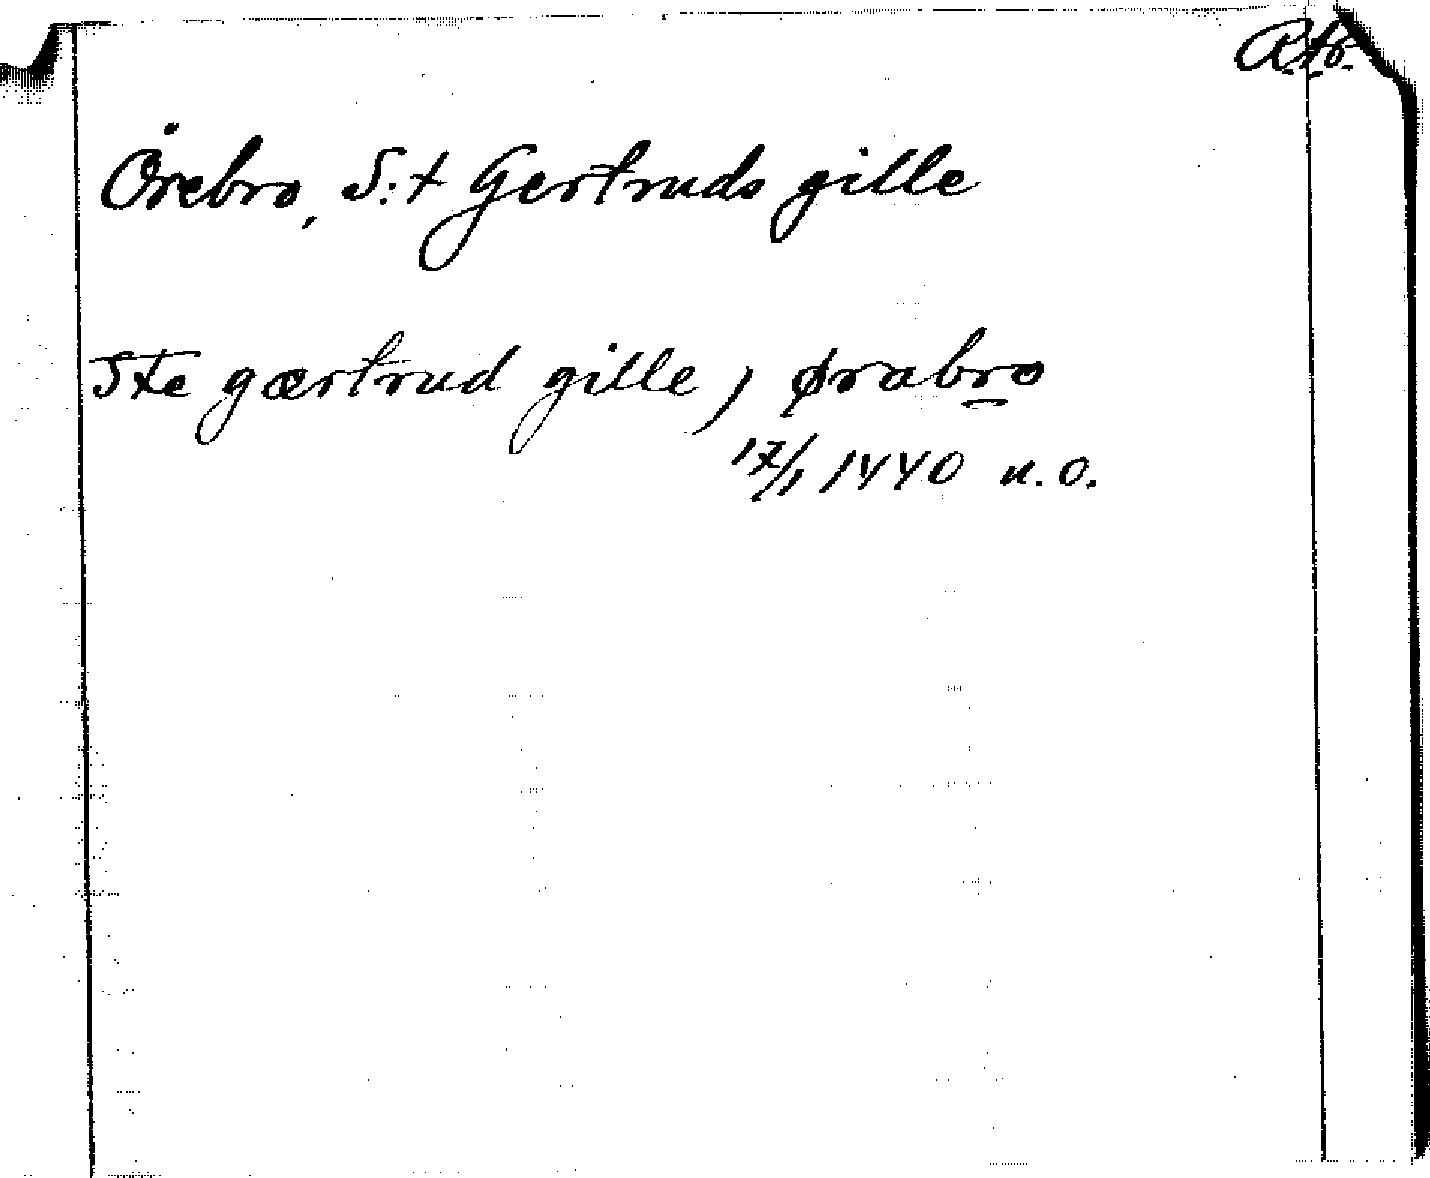 Örebro, S:t Gertruds gille
Ste gærtrud gille, ørabro
17/1 1440 u.o.